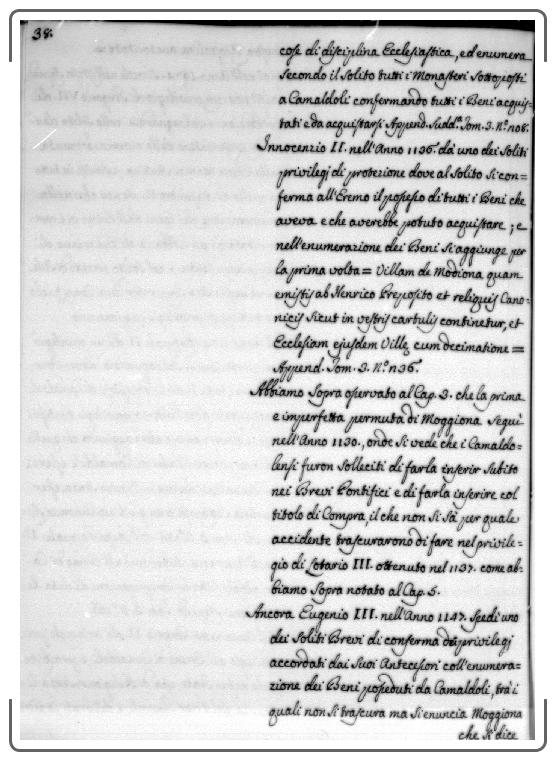 38.
cose di disciplina Ecclesiastica, ed enumera
Secondo il Solito tutti i Monasteri Sottoposti
a Camaldoli confermando tutti i Beni acquis=
tati e da acquistarsi Append. Sudd.ª Tom. 3. N.º 108.
Innocenzio II. nell'Anno 1136. dà uno dei Soliti
privilegj di protezione dove al Solito Si con=
ferma all'Eremo il possesso di tutti i Beni che
aveva e che averebbe potuto acquistare; e
nell'enumerazione dei Beni Si aggiunge per
la prima volta = Villam de Modiona quam
emistis ab Henrico Preposito et reliquis Cano=
nicis Sicut in vestris cartulis continetur, et
Ecclesiam ejusdem Ville cum decimatione =
Append. Tom. 3. N.º 136.
Abbiamo Sopra osservato al Cap. 3. che la prima
e imperfetta permuta di Moggiona Seguì
nell'Anno 1130., onde Si vede che i Camaldo=
lensi furon Solleciti di farla inserir Subito
nei Brevi Pontificj e di farla inserire col
titolo di Compra, il che non Si Sà per quale
accidente trascurarono di fare nel privile=
gio di Lotario III. ottenuto nel 1137. come ab=
biamo Sopra notato al Cap. 5.
Ancora Eugenio III. nell'Anno 1147. Spedì uno
dei Soliti Brevi di conferma dei privilegj
accordati dai Suoi Antecessori coll'enumera=
zione dei Beni posseduti da Camaldoli, trà i
quali non Si trascura ma Si enuncia Moggiona
che Si dice